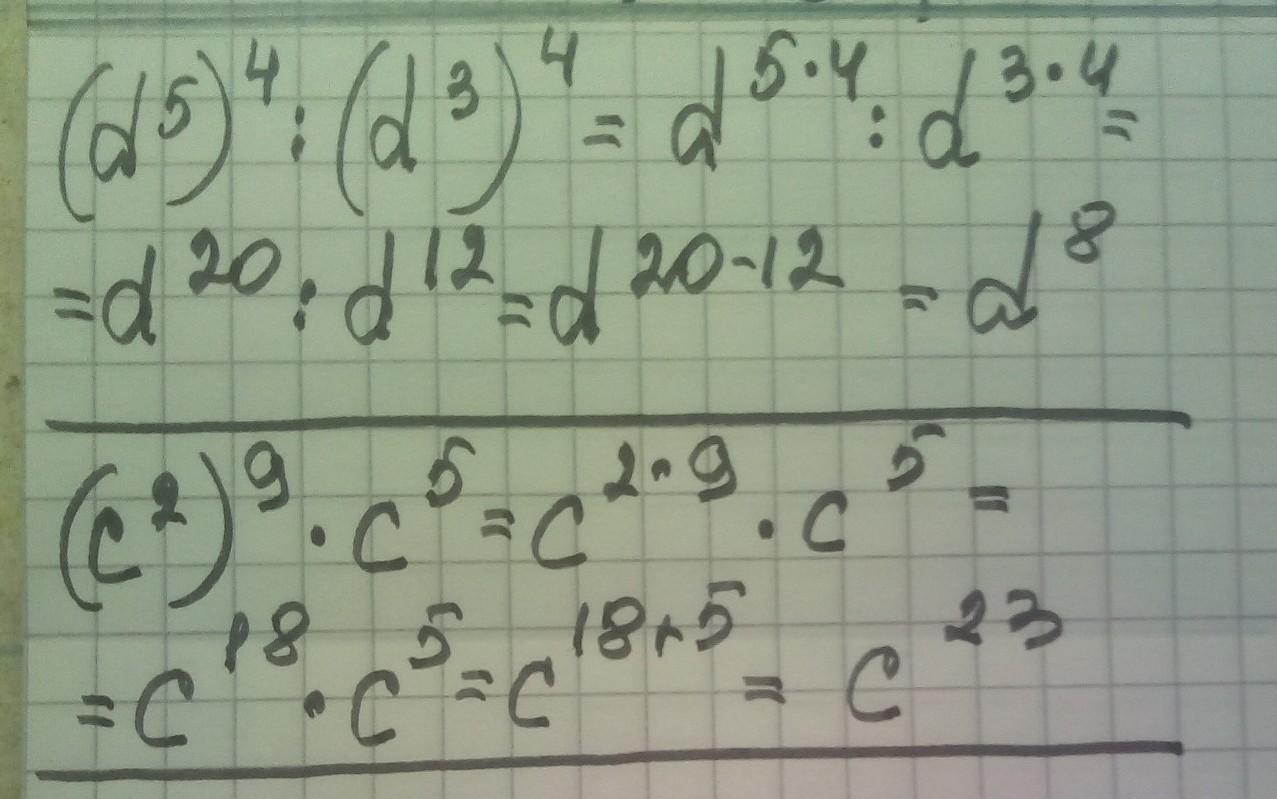 (d⁵)⁴ : (d³)⁴ = d⁵·⁴ : d³·⁴ =
= d²⁰ : d¹² = d²⁰⁻¹² = d⁸
(c²)⁹ · c⁵ = c²·⁹ · c⁵ =
= c¹⁸ · c⁵ = c¹⁸⁺⁵ = c²³